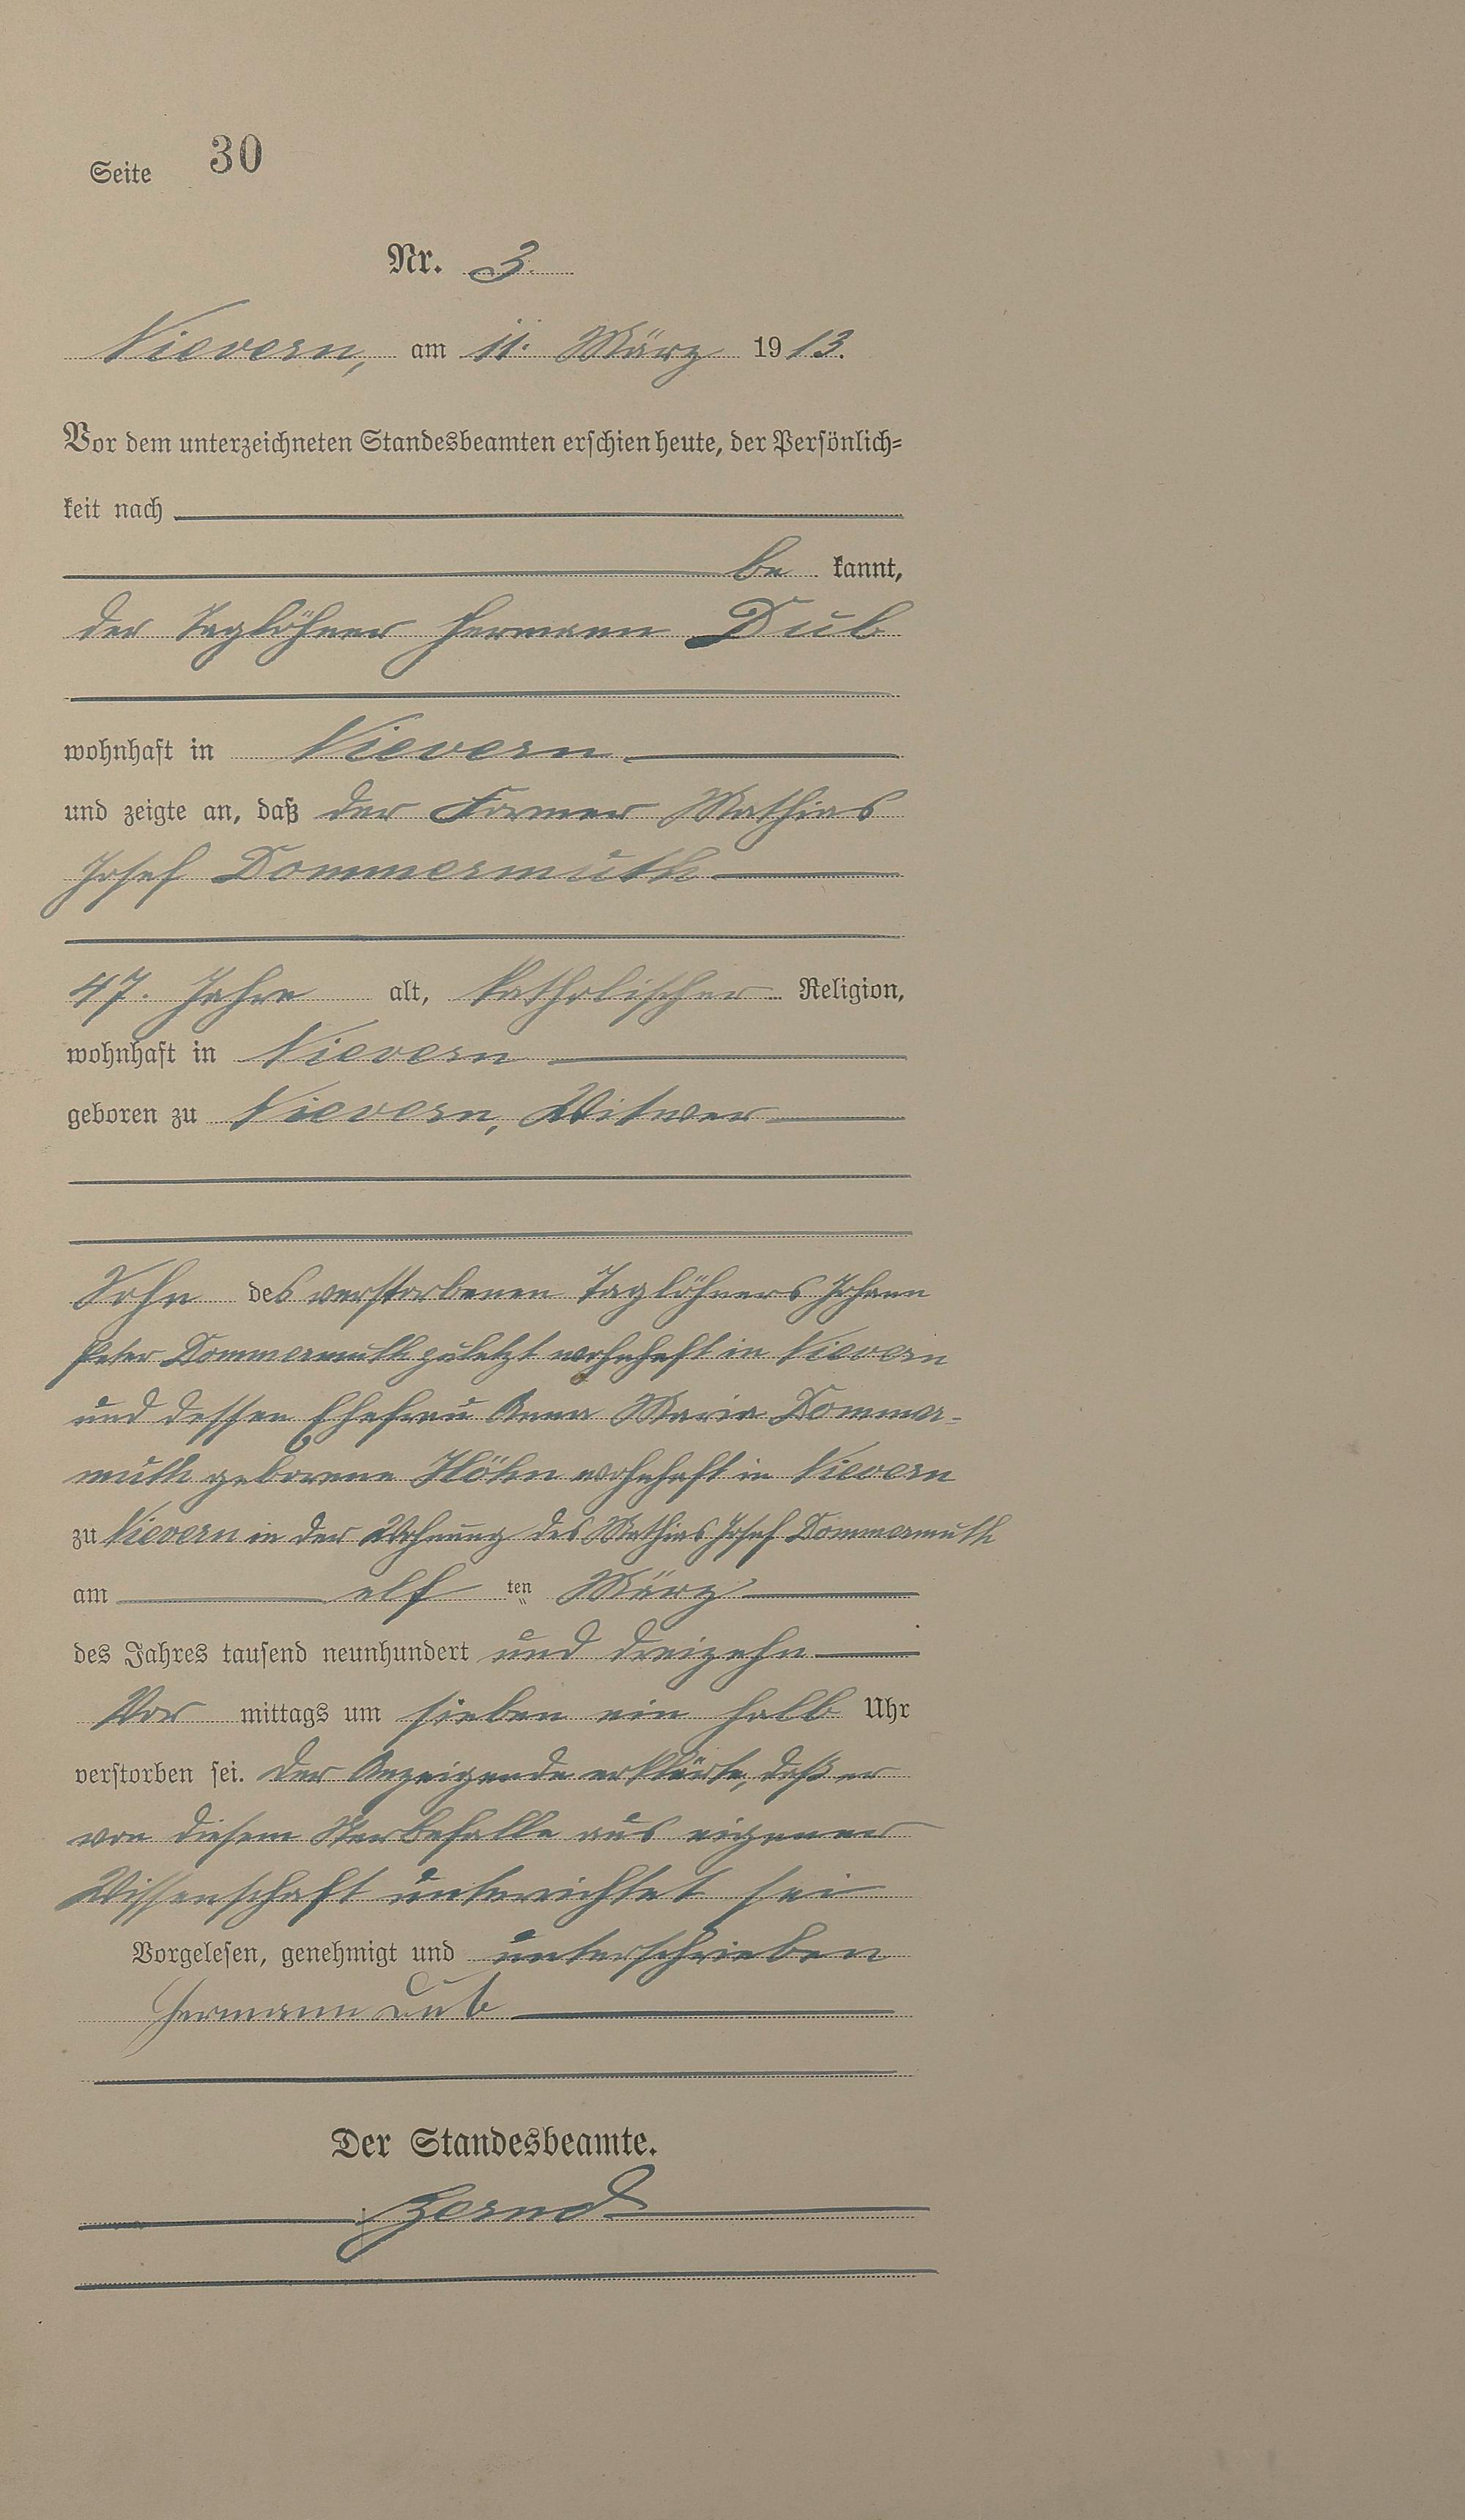 Seite 30
Nr. 3.
Nievern, am 11. März 1913.
Vor dem unterzeichneten Standesbeamten erschien heute, der Persönlich=
keit nach
be kannt,
der Taglöhner Hermann Dub
wohnhaft in Nievern
und zeigte an, daß der Former Mathias
Josef Dommermuth
47. Jahre alt, katholischer Religion,
wohnhaft in Nievern
geboren zu Nievern, Witwer
Sohn des verstorbenen Taglöhners Johann
Peter Dommermuth zuletzt wohnhaft in Nievern
und dessen Ehefrau Anna Maria Dommer-
muth geborene Höhn wohnhaft in Nievern
zu Nievern in der Wohnung des Mathias Josef Dommermuth
am elf ten März
des Jahres tausend neunhundert und dreizehn
Vor mittags um sieben ein halb Uhr
verstorben sei. Der Anzeigende erklärte, daß er
von diesem Sterbefalle aus eigener
Wissenschaft unterrichtet sei
Vorgelesen, genehmigt und unterschrieben
Hermann Dub
Der Standesbeamte.